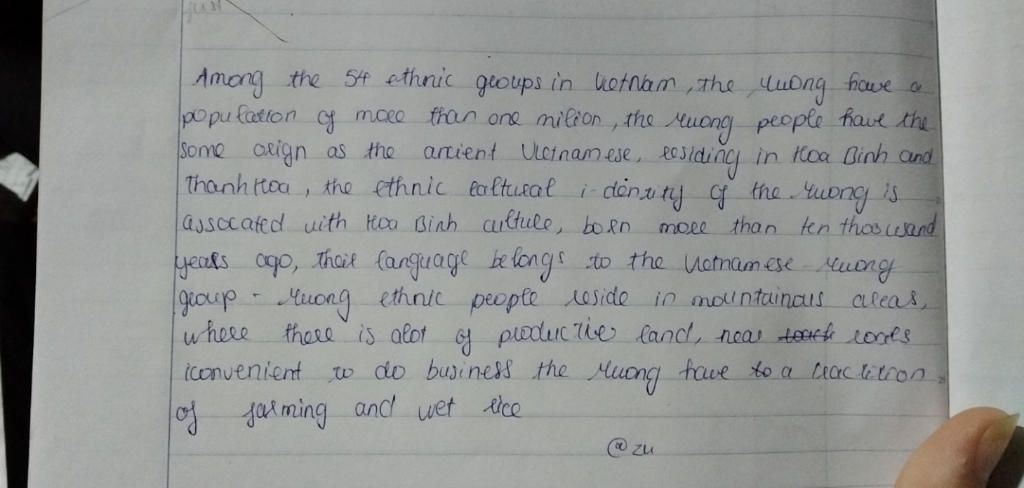 just
Among the 54 ethnic groups in Vietnam, the Muong have a
population of more than one milion, the Muong people have the
some orign as the ancient Vietnamese, residing in Hoa Binh and
Thanh Hoa, the ethnic caltural i-dentity of the Muong is
assocated with Hoa Binh culture, born more than ten thousand
years ago, their language belongs to the Vietnamese - Muong
group - Muong ethnic people reside in mountainous areas,
where there is alot of productive land, near roads
iconvenient to do business the Muong have to a tractition
of farming and wet rice
@zu